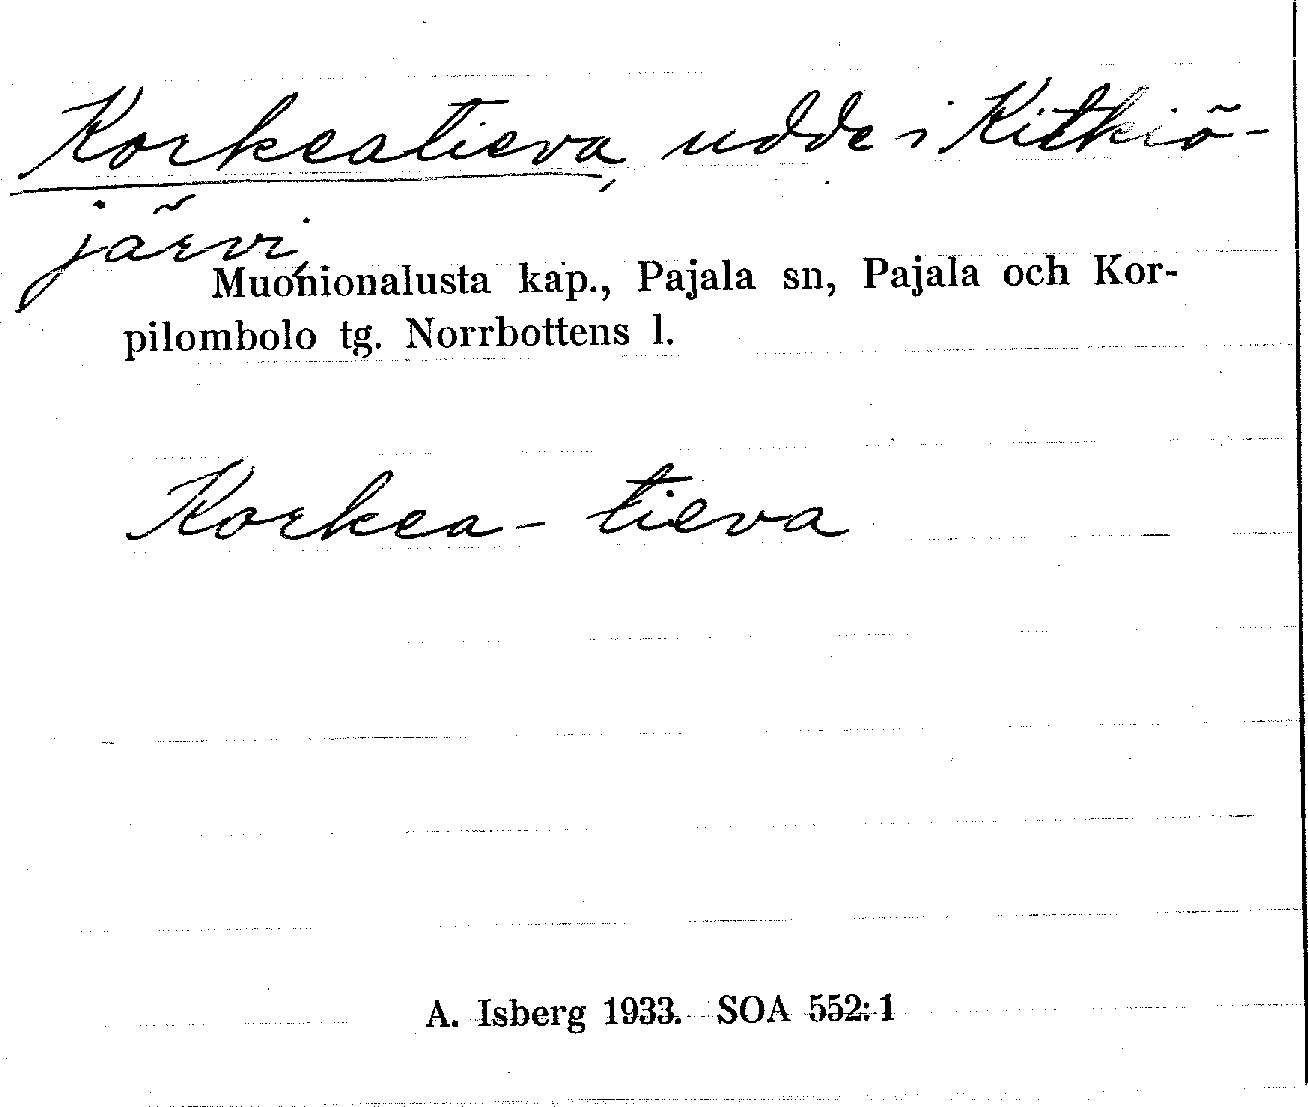 Korkeatieva, udde i Kitkiö-
järvi,
Muonionalusta kap., Pajala sn, Pajala och Kor-
pilombolo tg. Norrbottens l.
Korkea- tieva
A. Isberg 1933. SOA 552:1